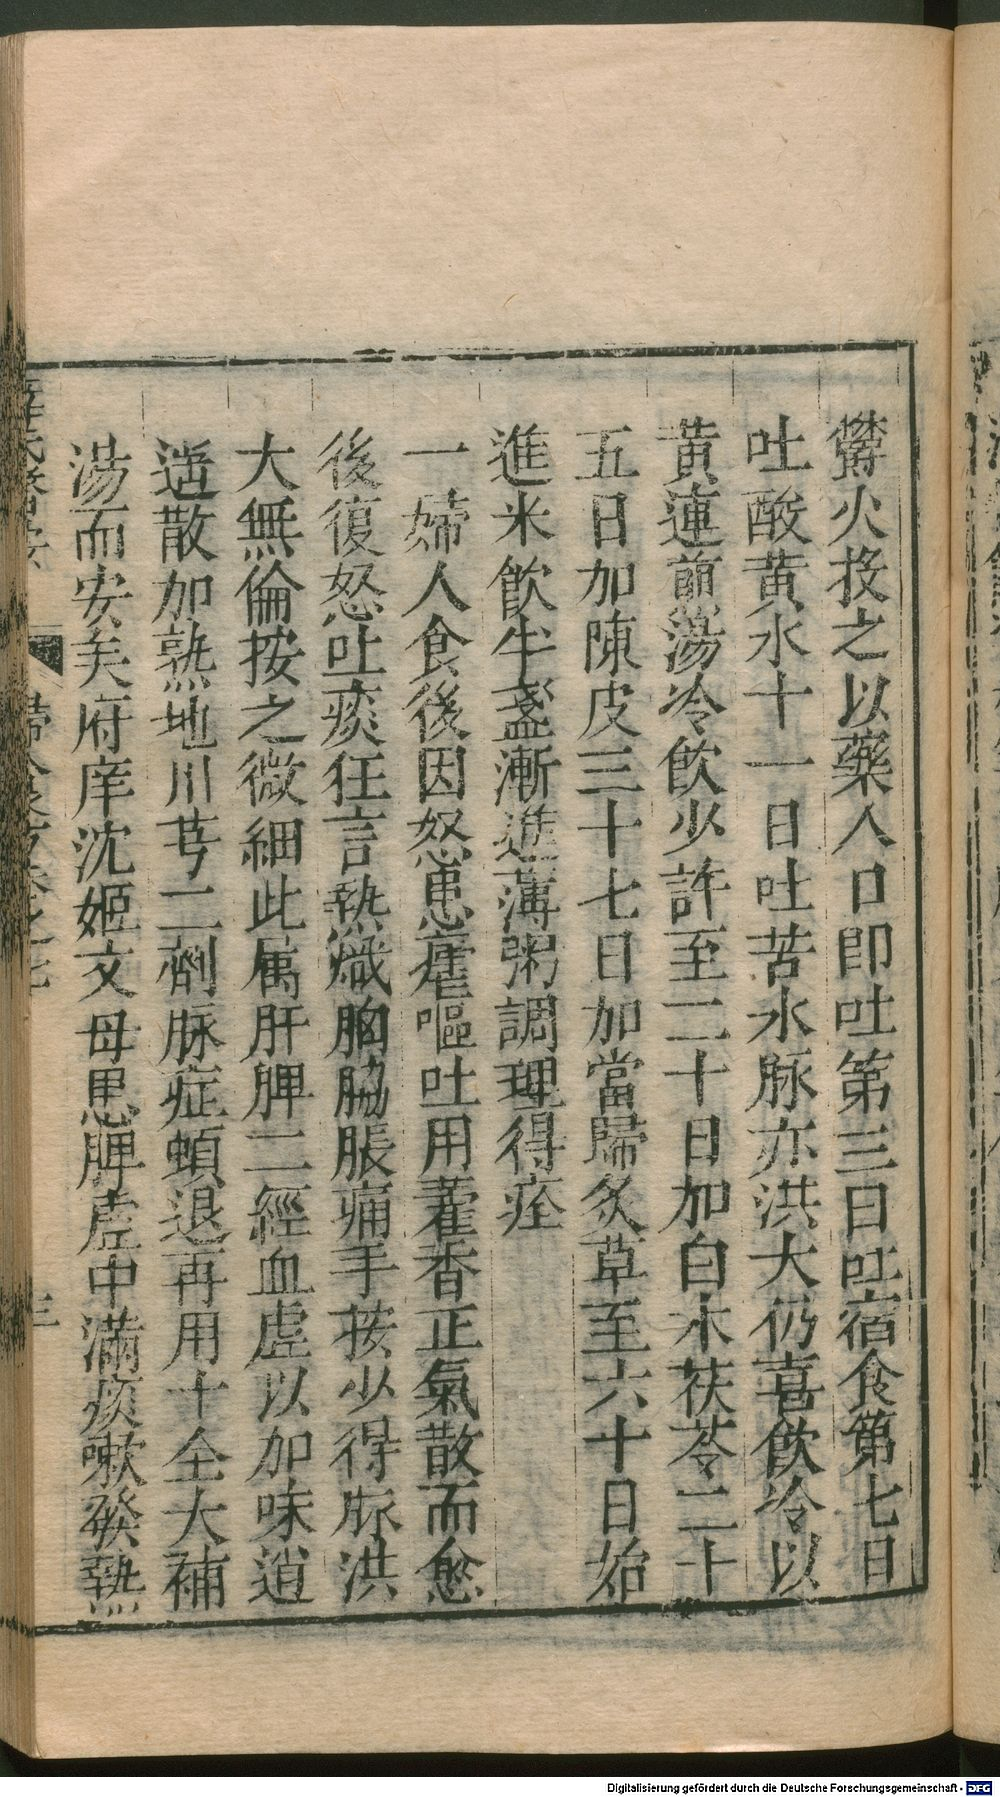 鬱火投之以藥入口即吐第三日吐宿食第七日
吐酸黄水十一日吐苦水脉亦洪大仍喜飲冷以
黄連煎湯冷飲少許至二十日加白朮茯苓二十
五日加陳皮三十七日加當歸炙草至六十日始
進米飲半盞漸進薄粥調理得痊
一婦人食後因怒患瘧嘔吐用藿香正氣散而愈
後復怒吐痰狂言熱熾胸脇脹痛手按少得脉洪
大無倫按之微細此属肝脾二經血虚以加味逍
遥散加熟地川芎二劑脉症頓退再用十全大補
湯而安矣府庠沈姬文母患脾虚中滿痰嗽發熱
薛氏醫案
婦人良方卷之七
三
Digitalisierung gefördert durch die Deutsche Forschungsgemeinschaft - DFG